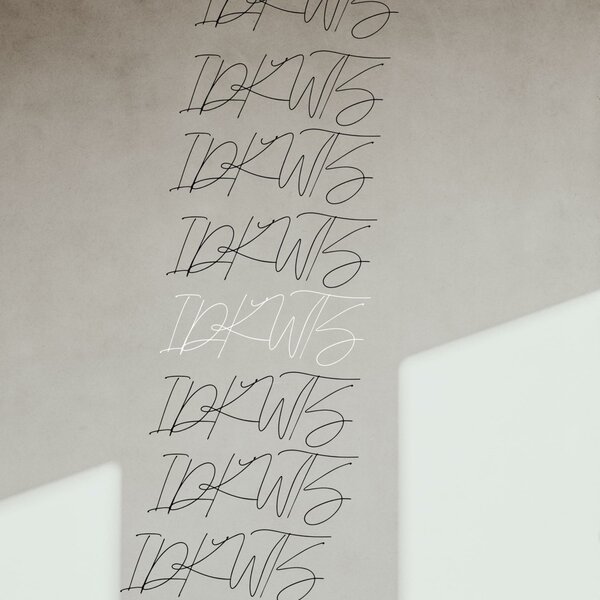 IDKWTS
IDKWTS
IDKWTS
IDKWTS
IDKWTS
IDKWTS
IDKWTS
IDKWTS